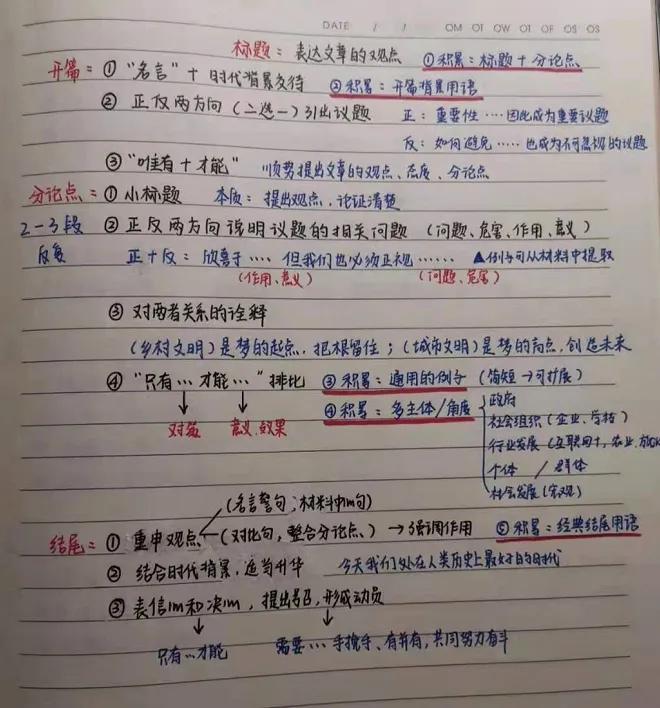 DATE / /
标题：表达文章的观点 ①积累：标题+分论点
开篇= ①"名言"+时代背景交待 ②积累：开篇背景用语
② 正反两方向（二选一）引出议题 正：重要性……因此成为重要议题
反：如何避免……也成为不可忽视的议题
③"唯有+才能" 顺势提出文章的观点、态度、分论点
分论点=①小标题 本质：提出观点，论证清楚
2-3段 ②正反两方向说明议题的相关问题（问题、危害、作用、意义）
反复 正+反：欣喜于…… 但我们也必须正视…… ▲例子可从材料中提取
(作用、意义) (问题、危害)
③ 对两者关系的诠释
(乡村文明)是梦的起点，把根留住；(城市文明)是梦的高点，创造未来
④"只有…才能…"排比 ③积累：通用的例子（简短→可扩展）
对策 意义、效果 ④积累：多主体/角度
政府
社会组织（企业、学校）
行业发展（互联网+，农业，
个体 / 群体
社会发展（宏观）
(名言警句；材料中m句)
结尾= ①重申观点（对比句，整合分论点）→强调作用 ⑤积累：经典结尾用语
② 结合时代背景，适当升华 今天我们处在人类历史上最好的时代
③ 表信m和决m，提出号召，形成动员
只有…才能 需要…手挽手、肩并肩，共同努力奋斗